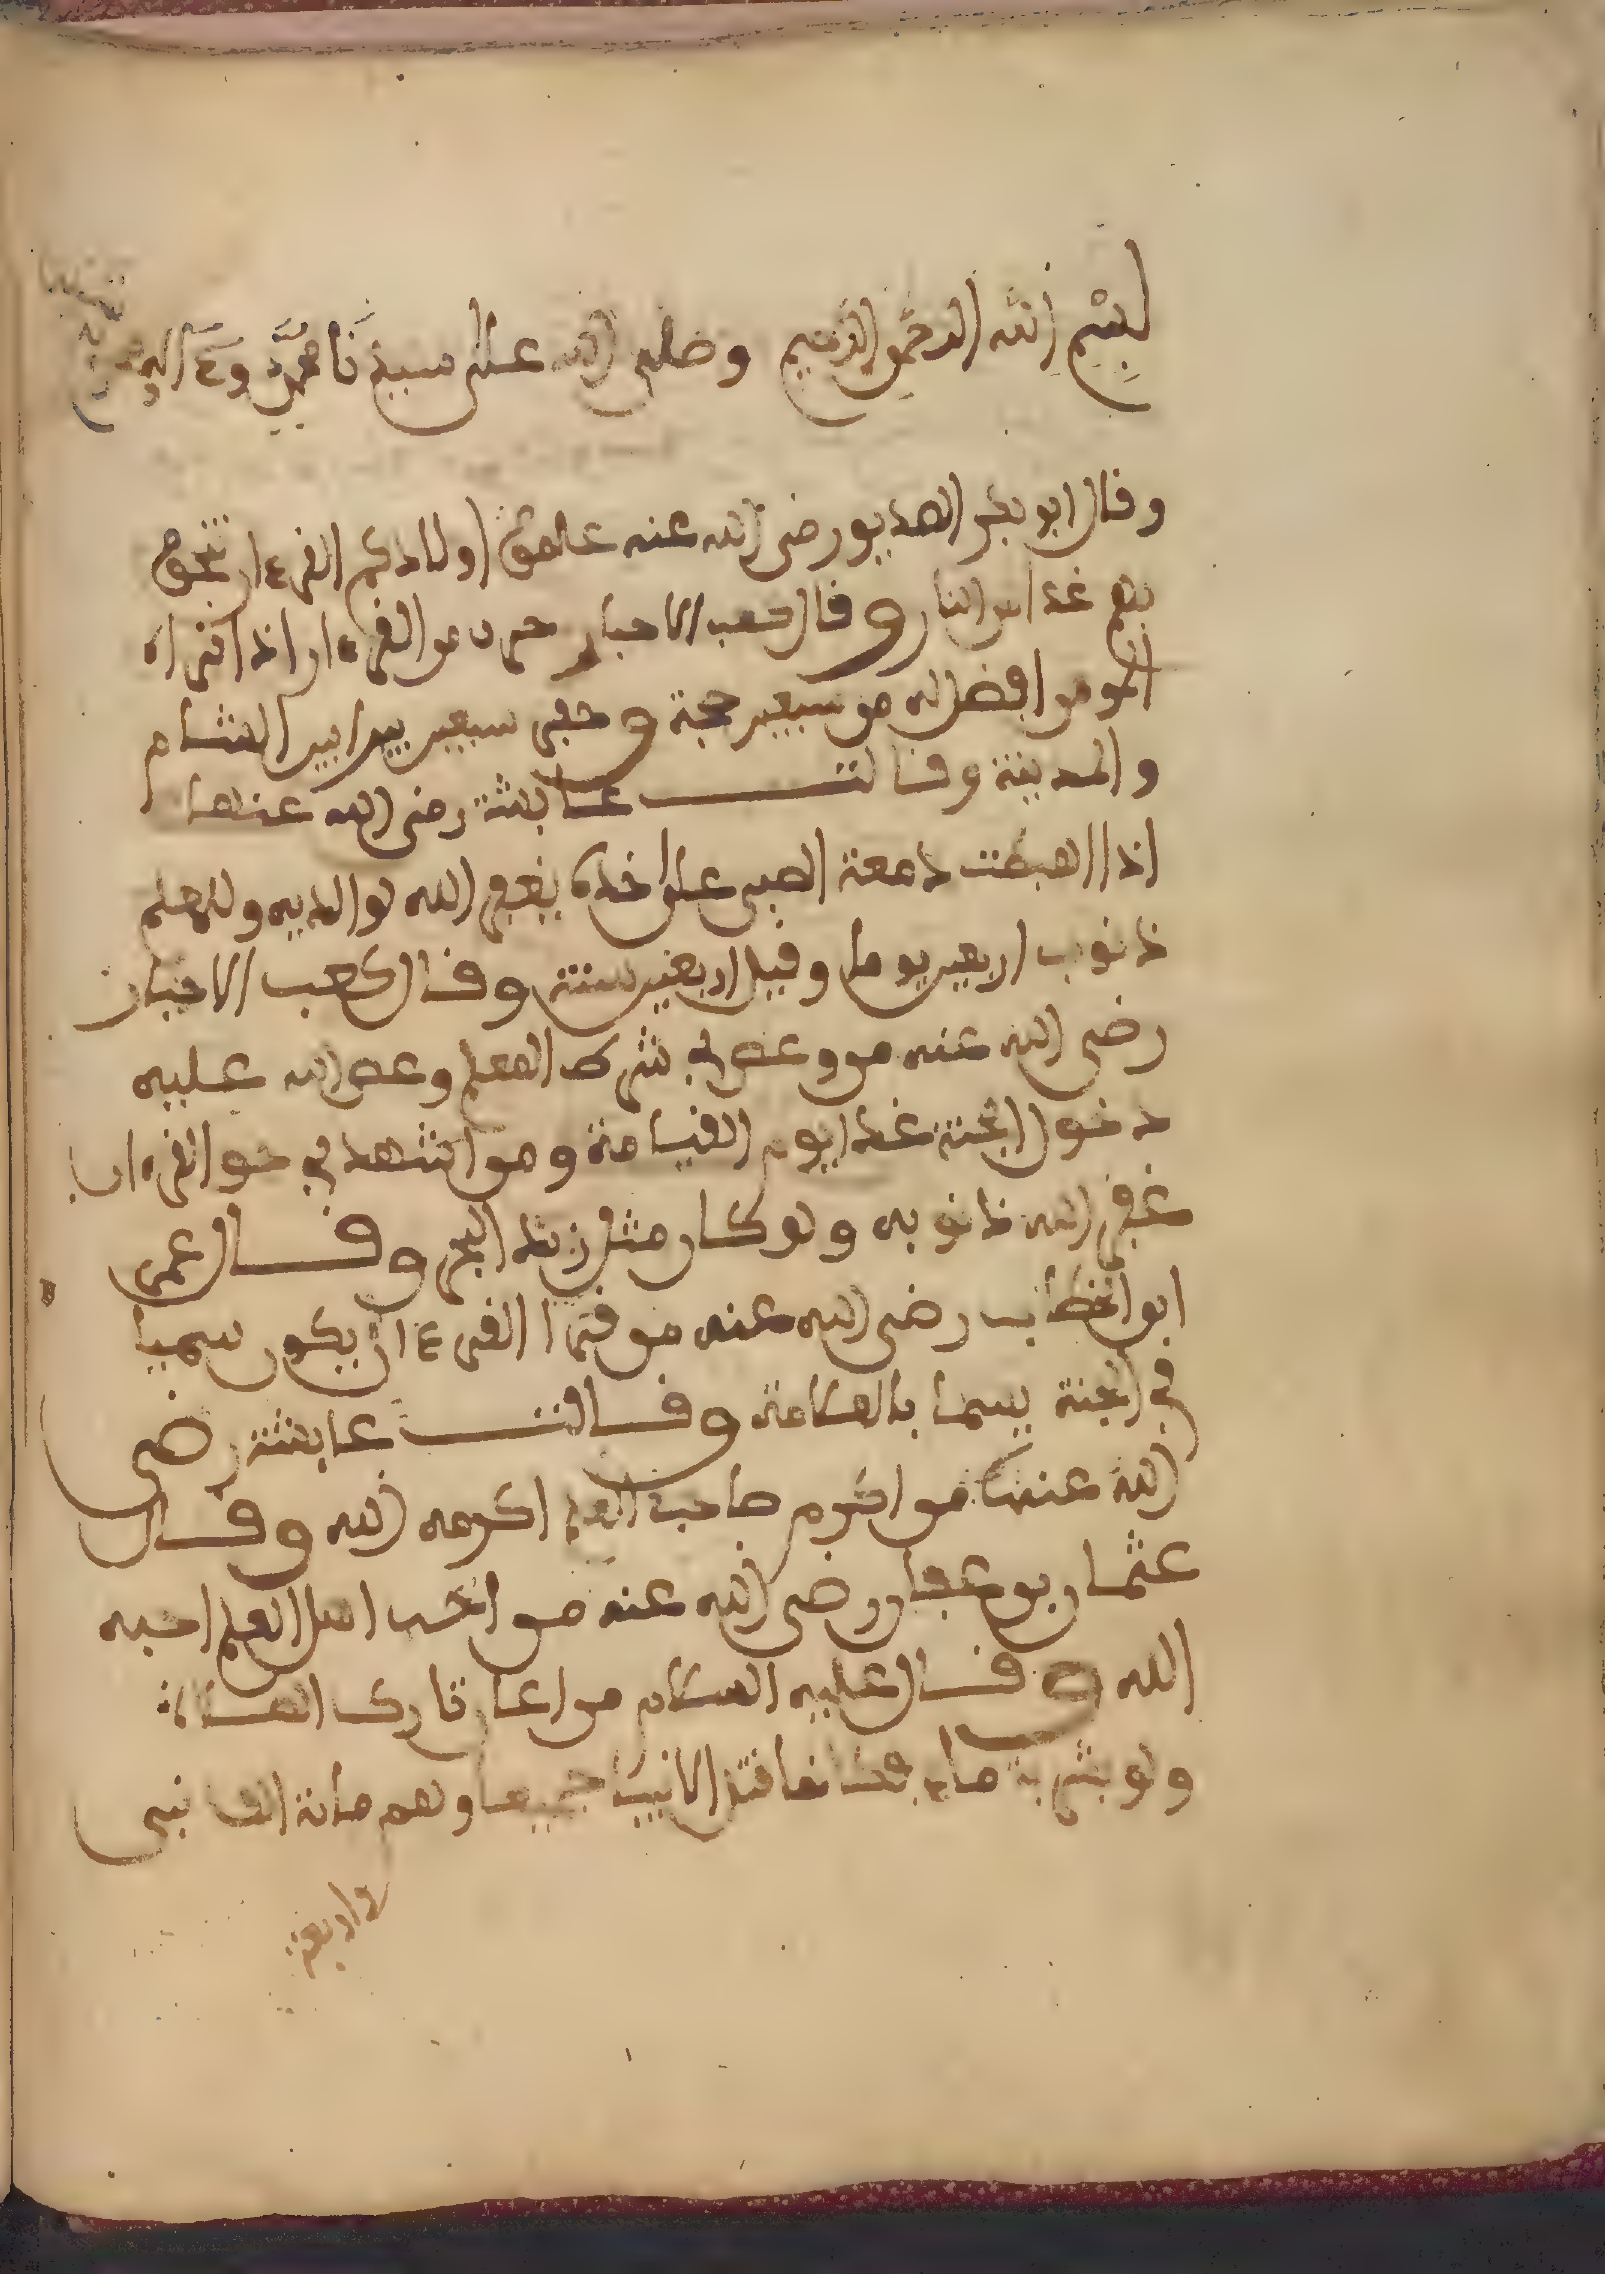 بسم الله الرحمن الرحيم وصلى الله على سيدنا محمد وعلى اله
وقال ابو بكر الصديق رضي الله عنه علموا اولادكم القرءان تنجوا
بهم غدا من النار وقال كعب الاحبار حرب من القرءان اذا اقراه
المومن افضل له من سبعين حجة و سبعين بين الشام
والمدينة وقالت عايشة رضي الله عنها
اذا اهبطت دمعة الصبي على خده يغفر الله لوالديه وللمعلم
ذنوب اربعين يوما وقيل اربعين سنة وقال كعب الاحبار
رضي الله عنه من وعد في شرط المعلم وعد الله عليه
دخول الجنة غدا يوم القيامة ومن اشهد في حق القرءان
غفر الله ذنوبه ولو كان مثل زبد البحر وقال عمر
ابو الخطاب رضي الله عنه من قرا القرءان يكون سميا
في الجنة يسما بالسلامة وقالت عايشة رضي
الله عنها من اكرم صاحب العلم اكرمه الله وقال
عثمان بن عفان رضي الله عنه من احب اهل العلم احبه
الله وقال عليه السلام من اعان تارك الصلاة
ولو بشربة ماء فكانما قتل الانبيا جميعا وهم مائة الف نبي
واربعة